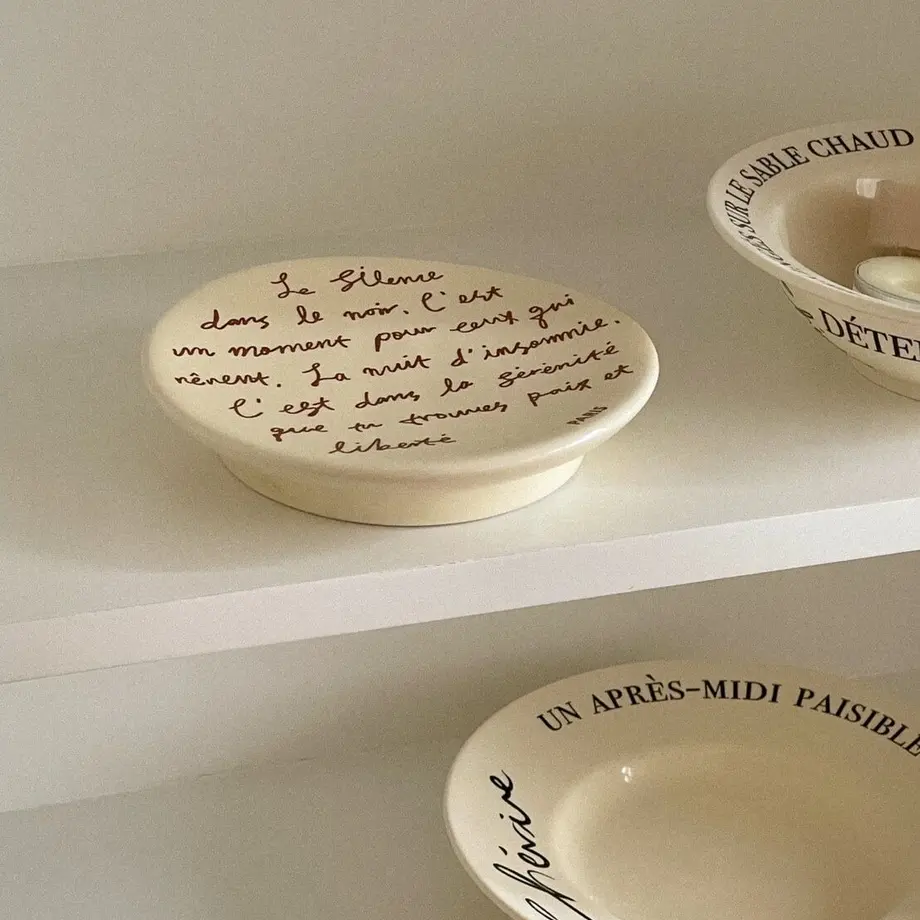 Le Silence
dans le noir. C'est
un moment pour ceux qui
rêvent. La nuit d'insomnie.
C'est dans la sérénité
que tu trouves paix et
liberté
PARIS
SUR LE SABLE CHAUD
DÉTEN
UN APRÈS-MIDI PAISIBLE